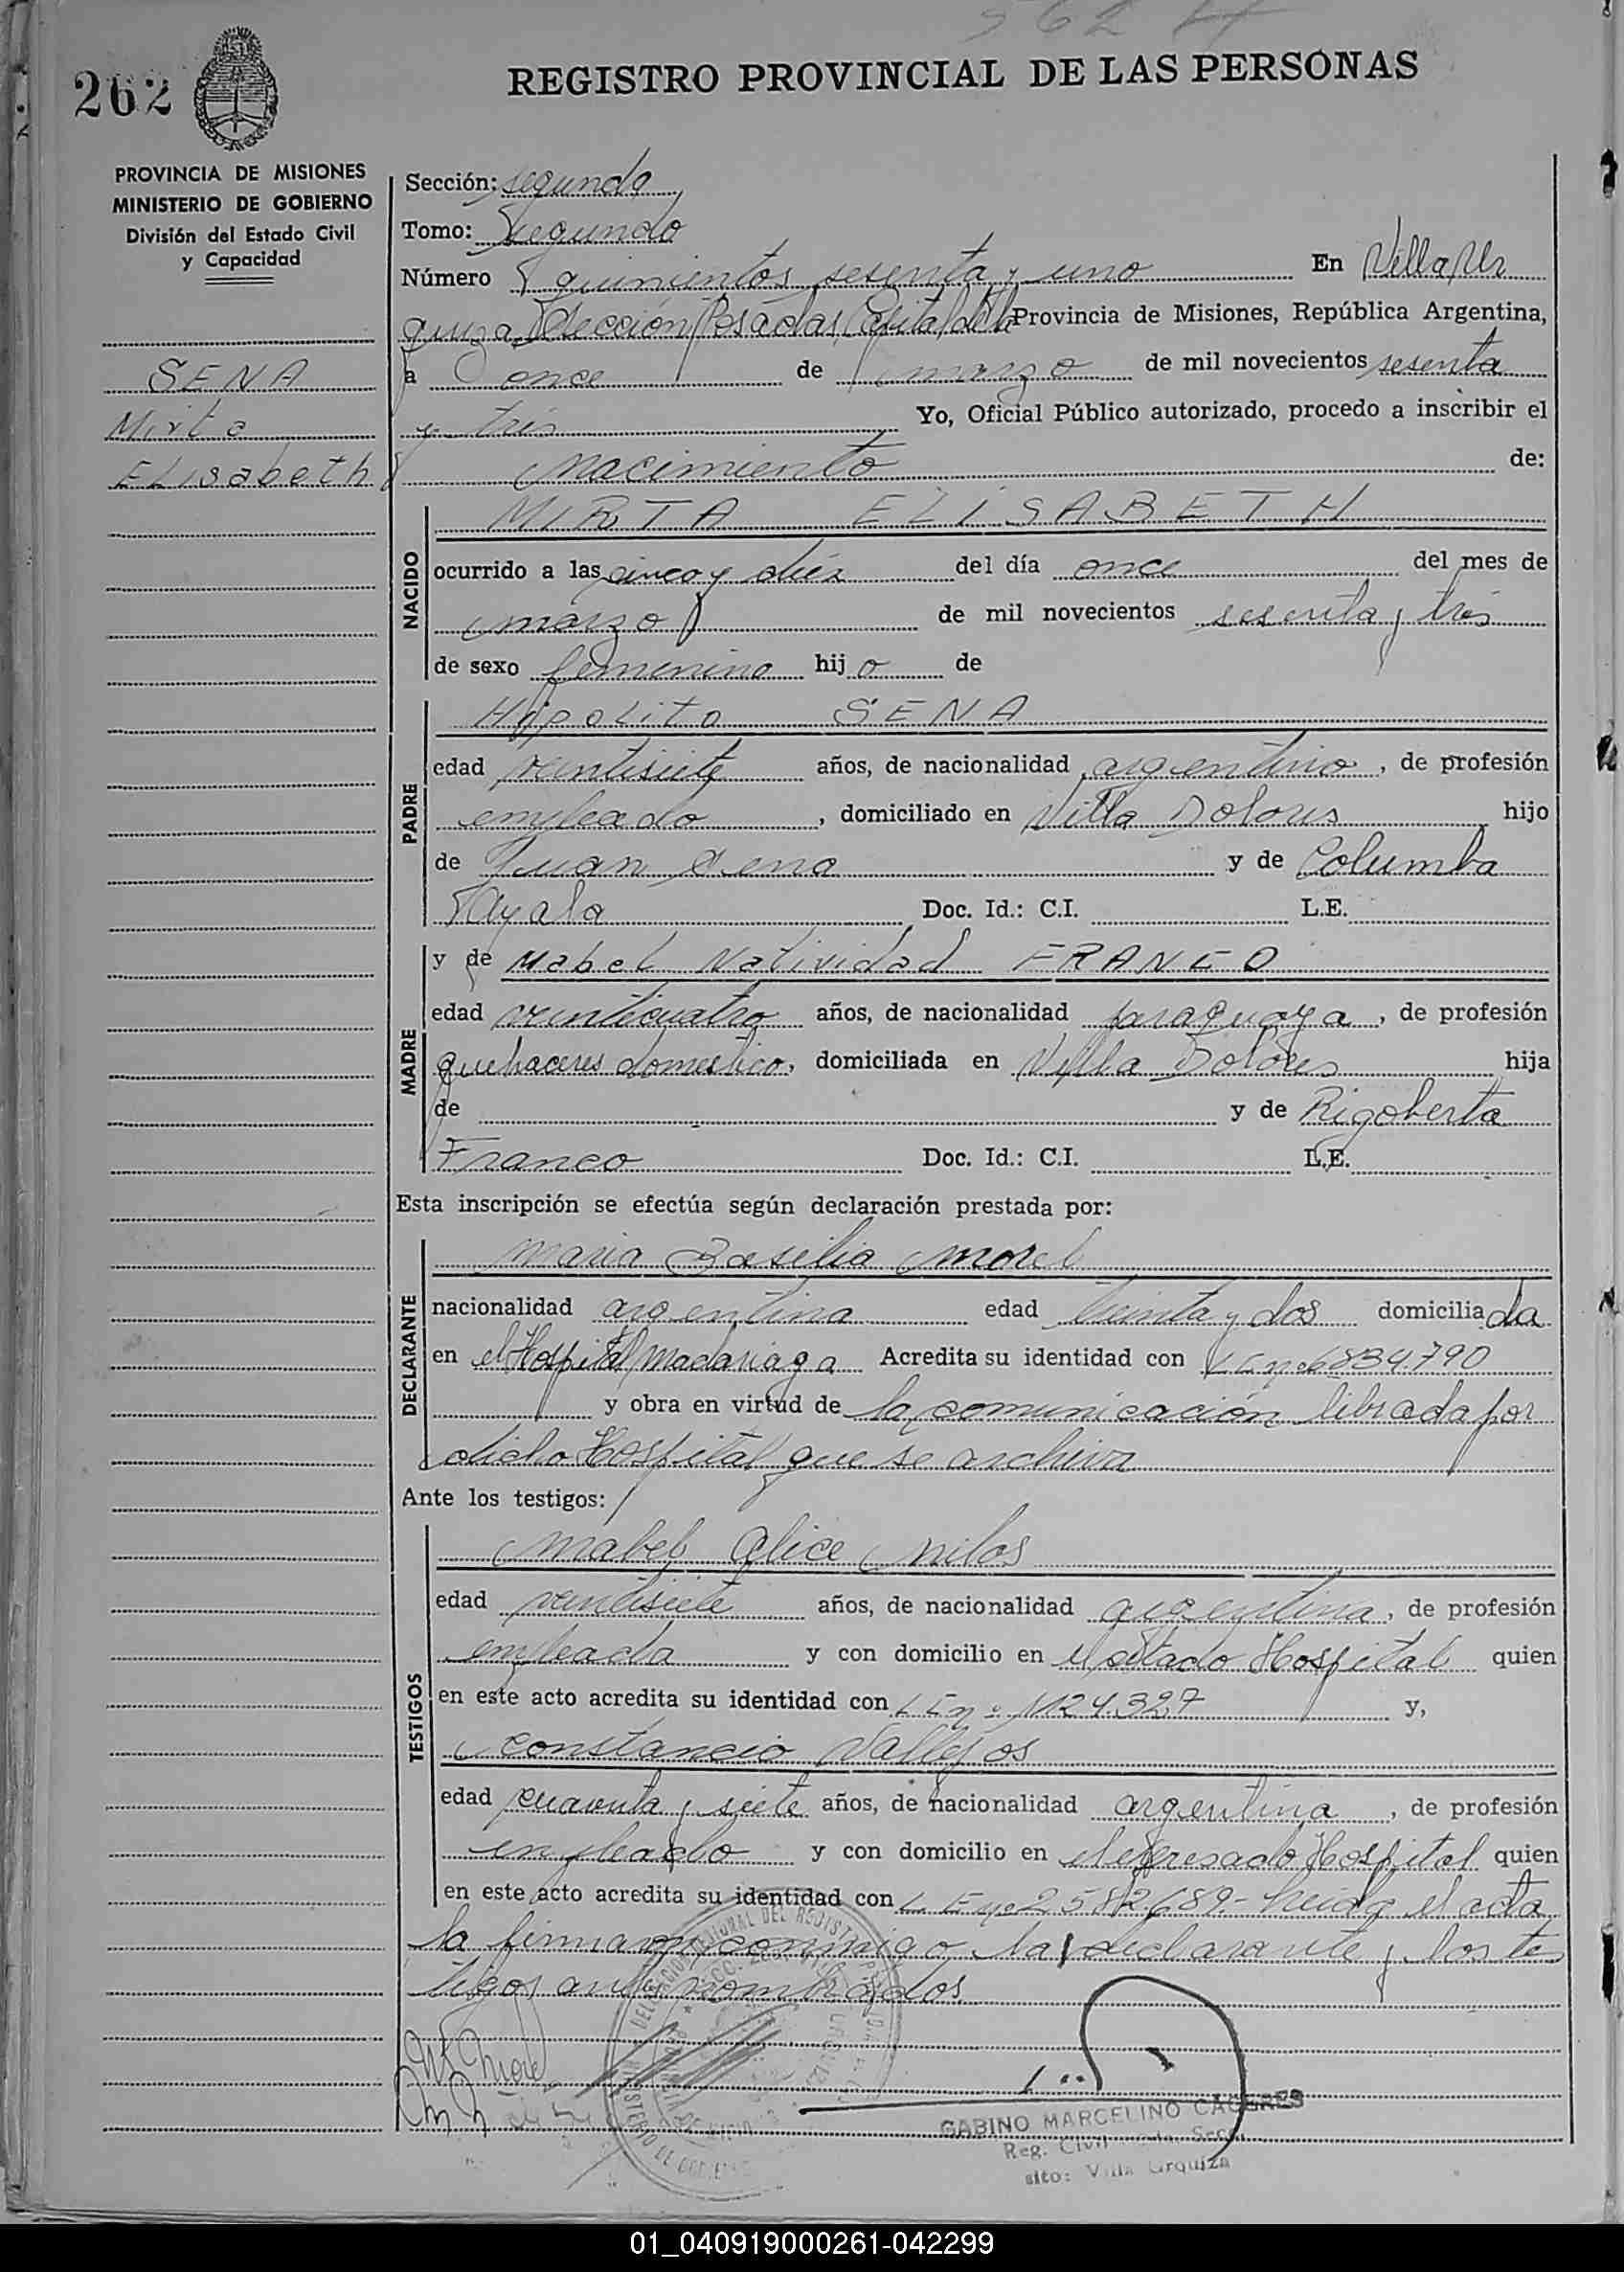 562
262
REGISTRO PROVINCIAL DE LAS PERSONAS
PROVINCIA DE MISIONES
MINISTERIO DE GOBIERNO
División del Estado Civil
y Capacidad
SENA
Mirta
ELisabeth
Sección: segunda
Tomo: Segundo
Número quinientos sesenta y uno En Villa Ur
quiza Sección Posadas, Capital de la Provincia de Misiones, República Argentina,
a once de marzo de mil novecientos sesenta
y tres Yo, Oficial Público autorizado, procedo a inscribir el
nacimiento de:
NACIDO
MIRTA ELISABETH
ocurrido a las cinco y diéz del día once del mes de
marzo de mil novecientos sesenta y tres
de sexo femenino hij a de
PADRE
Hipolito SENA
edad veintisiete años, de nacionalidad argentino, de profesión
empleado, domiciliado en Villa Dolores hijo
de Juan Sena y de Columba
Ayala Doc. Id.: C.I. L.E.
MADRE
y de Mabel Natividad FRANCO
edad veinticuatro años, de nacionalidad paraguaya, de profesión
quehaceres domestico, domiciliada en Villa Dolores hija
de y de Rigoberta
Franco Doc. Id.: C.I. L.E.
Esta inscripción se efectúa según declaración prestada por:
DECLARANTE
Maria Basilia Morel
nacionalidad argentina edad treinta y dos domiciliada
en el Hospital Madariaga Acredita su identidad con 6834.790
y obra en virtud de la comunicación librada por
dicho Hospital que se archiva
Ante los testigos:
TESTIGOS
Mabel Alice Milos
edad veintisiete años, de nacionalidad argentina, de profesión
empleada y con domicilio en el citado Hospital quien
en este acto acredita su identidad con 1124.327 y,
Constancio Vallejos
edad cuarenta y siete años, de nacionalidad argentina, de profesión
empleado y con domicilio en el expresado Hospital quien
en este acto acredita su identidad con L E nº 2582.689.- Leida el acta
la firman conmigo la declarante y los tes
tigos ante nombrados
M B Morel
GABINO MARCELINO CACERES
Reg. Civil Secc.
sito: Villa Urquiza
01_040919000261-042299